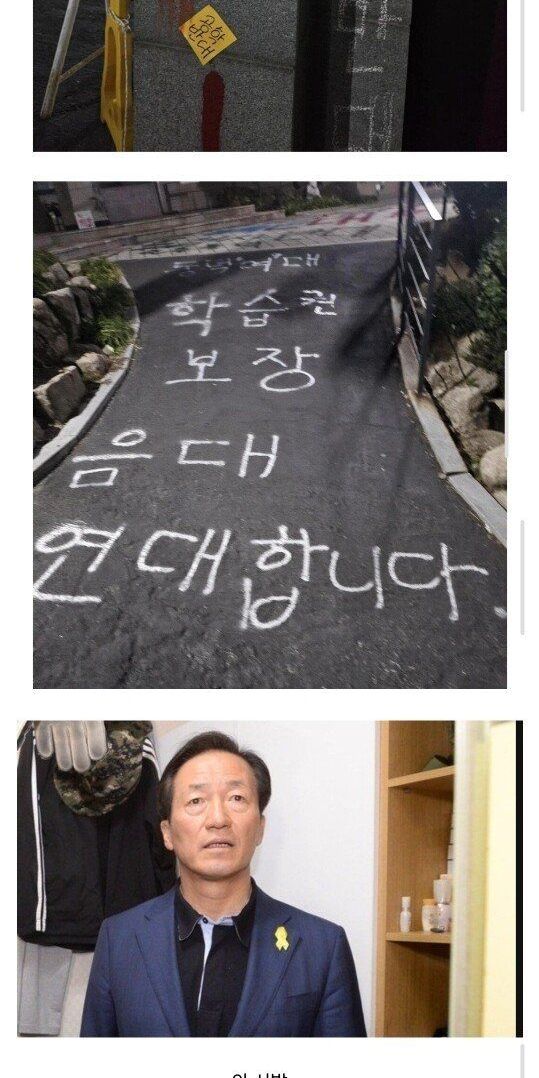 공학
반대
동덕'여'대
학습권
보장
음대
연대합니다.